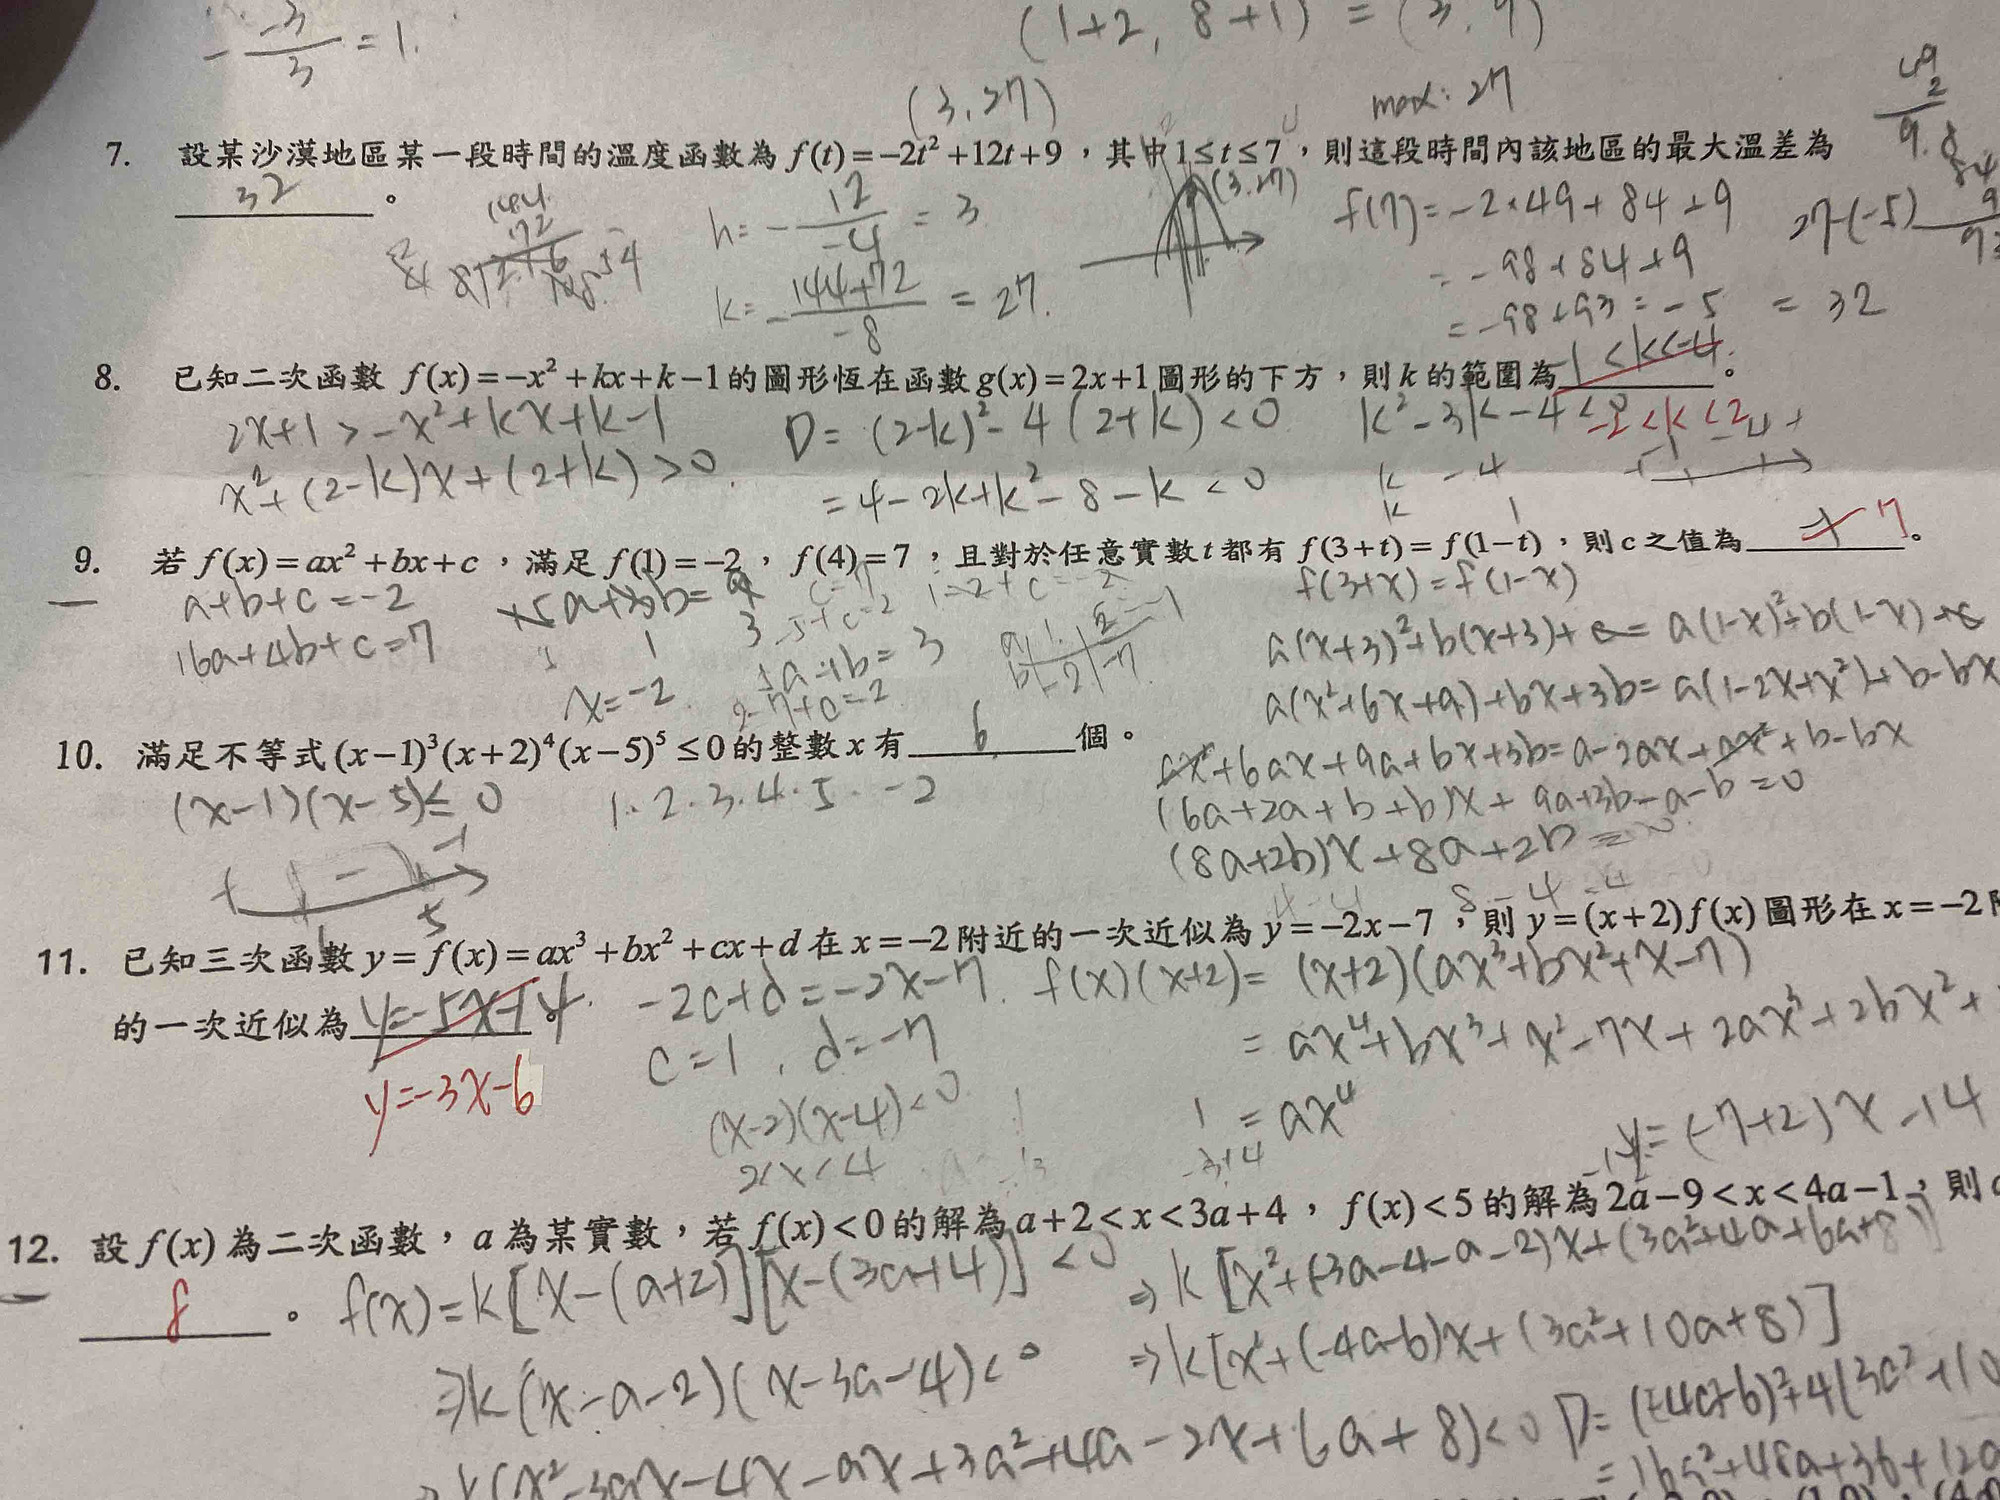 - -3/3 = 1.
(1+2, 8+1) = (3, 9)
(3, 27)
max: 27
7. 設某沙漠地區某一段時間的溫度函數為 f(t)=-2t²+12t+9，其中1≤t≤7，則這段時間內該地區的最大溫差為
32 。
h= - 12/-4 = 3
(3.27)
f(7)=-2×49+84+9
27-(-5)
k= - 144+72/-8 = 27.
= -98+84+9
= -98+93 = -5 = 32
8. 已知二次函數 f(x)=-x²+kx+k-1的圖形恆在函數g(x)=2x+1圖形的下方，則k的範圍為 -1<k<4 。
2x+1>-x²+kx+k-1 D= (2-k)²-4(2+k)<0 k²-3k-4<0
-2<k<2
x²+(2-k)x+(2+k)>0
=4-2k+k²-8-k<0
k -4
k 1
9. 若 f(x)=ax²+bx+c，滿足 f(1)=-2，f(4)=7，且對於任意實數t都有 f(3+t)=f(1-t)，則c之值為 7 。
a+b+c=-2
f(3+x)=f(1-x)
16a+4b+c=7
x=-2
a(x+3)²+b(x+3)+c=a(1-x)²+b(1-x)+c
a(x²+6x+9)+bx+3b=a(1-2x+x²)+b-bx
10. 滿足不等式(x-1)³(x+2)⁴(x-5)⁵≤0的整數x有 6 個。
ax²+6ax+9a+bx+3b=a-2ax+ax²+b-bx
(x-1)(x-5)≤0 1.2.3.4.5.-2
(6a+2a+b+b)x+9a+3b-a-b=0
(8a+2b)x+8a+2b=0
11. 已知三次函數y=f(x)=ax³+bx²+cx+d在x=-2附近的一次近似為y=-2x-7，則y=(x+2)f(x)圖形在x=-2
的一次近似為 y=-5x-14 。
y=-3x-6
-2c+d=-2x-7. f(x)(x+2)=(x+2)(ax³+bx²+x-7)
c=1, d=-7
=ax⁴+bx³+x²-7x+2ax³+2bx²+
(x-2)(x-4)<0
=ax⁴
2<x<4
y=(-7+2)x-14
12. 設f(x)為二次函數，a為某實數，若f(x)<0的解為a+2<x<3a+4，f(x)<5的解為2a-9<x<4a-1，則
8 。
f(x)=k[x-(a+2)][x-(3a+4)]<0
⇒k[x²+(-3a-4-a-2)x+(3a²+4a+6a+8)]
⇒k(x-a-2)(x-3a-4)<0
⇒k[x²+(-4a-6)x+(3a²+10a+8)]
⇒k(x²-3ax-4x-ax+3a²+4a-2x+6a+8)<0
D=(-4a-6)²+4(3a²+10
=16a²+48a+36+12a